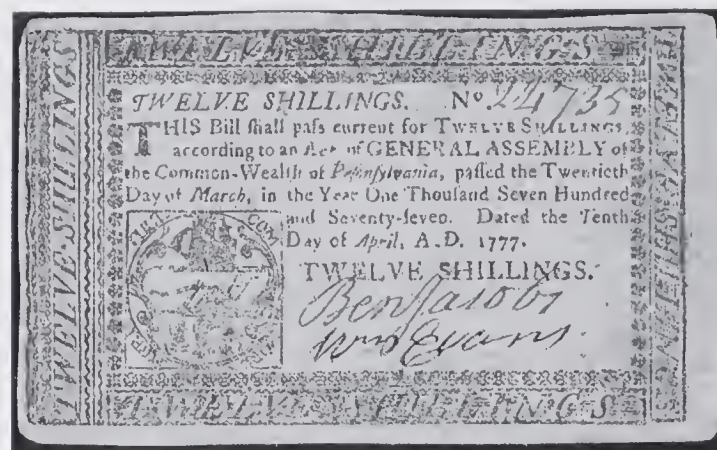 TWELVE SHILLINGS
TWELVE-SHILLINGS
TWELVE SHILLINGS. No. 24735
THIS Bill ſhall paſs current for TWELVE SHILLINGS,
according to an Act of GENERAL ASSEMBLY of
the Common-Wealth of Pennſylvania, paſſed the Twentieth
Day of March, in the Year One Thouſand Seven Hundred
and Seventy-ſeven. Dated the Tenth
Day of April, A.D. 1777.
TWELVE SHILLINGS.
Ben Jacobs
Wm Evans
TWELVE SHILLINGS